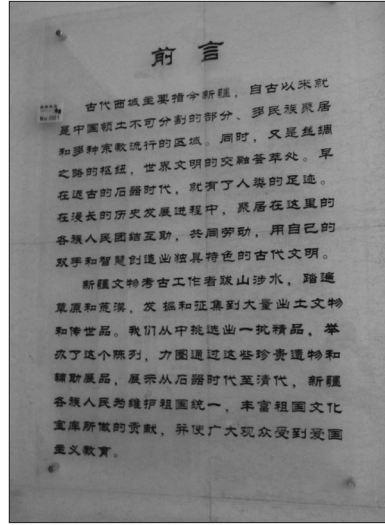 前言
古代西域主要指今新疆，自古以来就
是中国领土不可分割的部分、多民族聚居
和多种宗教流行的区域。同时，又是丝绸
之路的枢纽，世界文明的交融荟萃处。早
在远古的石器时代，就有了人类的足迹。
在漫长的历史发展进程中，聚居在这里的
各族人民团结互助，共同劳动，用自己的
双手和智慧创造出独具特色的古代文明。
新疆文物考古工作者跋山涉水，踏遍
草原和荒漠，发掘和征集到大量出土文物
和传世品。我们从中挑选出一批精品，举
办了这个陈列，力图通过这些珍贵遗物和
辅助展品，展示从石器时代至清代，新疆
各族人民为维护祖国统一，丰富祖国文化
宝库所做的贡献，并使广大观众受到爱国
主义教育。